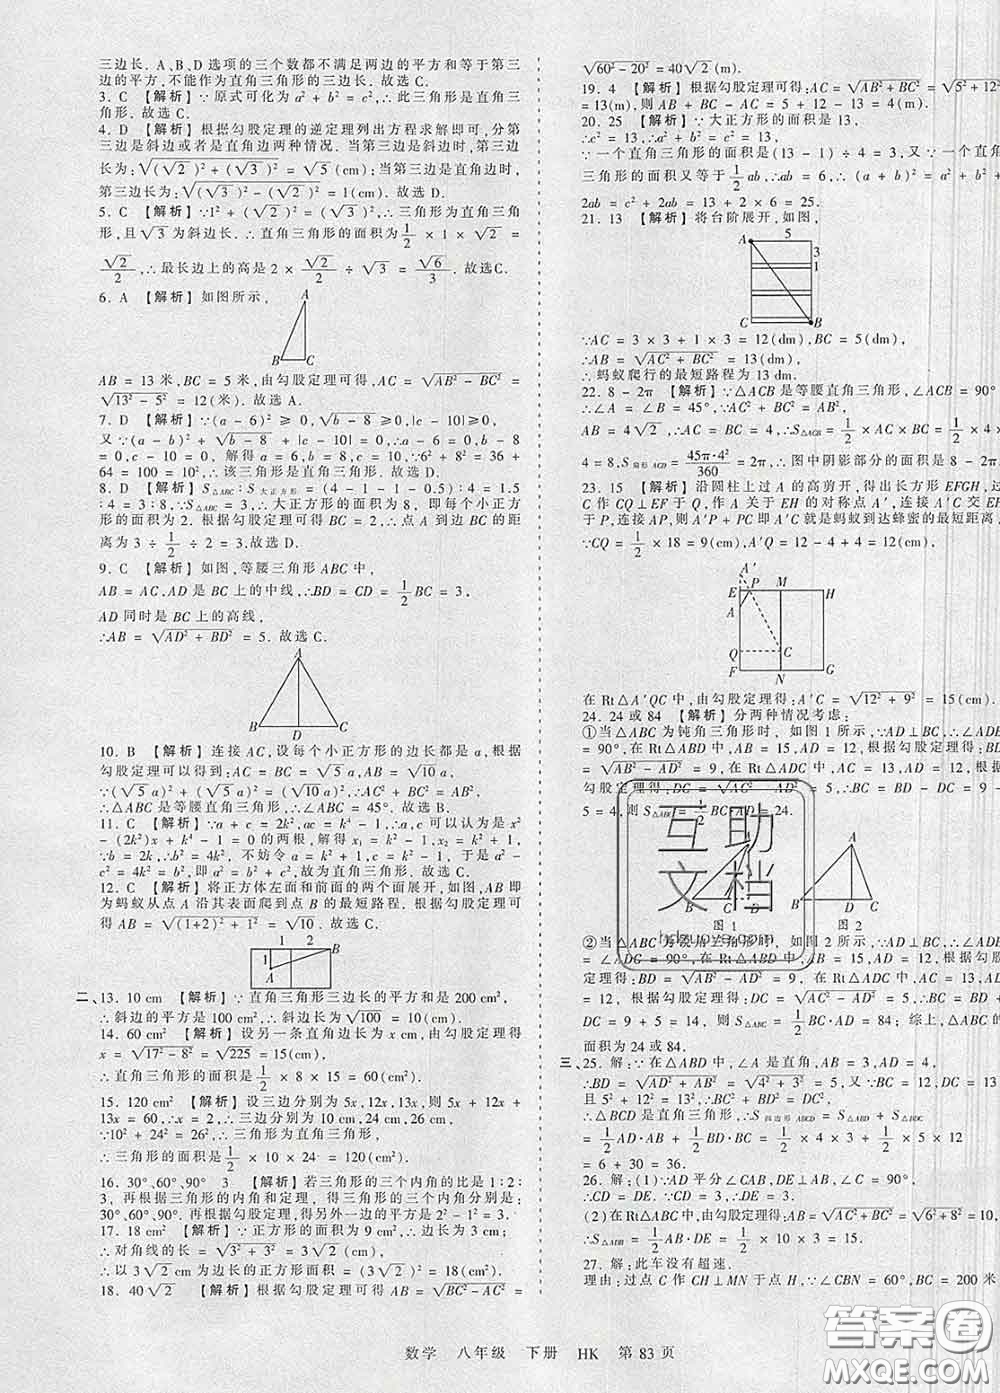 三边长. A、B、D 选项的三个数都不满足两边的平方和等于第三
边的平方, 不能作为直角三角形的三边长. 故选 C.
3. C 【解析】∵原式可化为 a² + b² = c², ∴此三角形是直角三
角形. 故选 C.
4. D 【解析】根据勾股定理的逆定理列出方程求解即可, 分第
三边是斜边或者是直角边两种情况. 当第三边是斜边时, 第三
边长为: √((√3)² + (√2)²) = √5 (cm), 当第三边是直角边时,
第三边长为: √((√3)² - (√2)²) = 1(cm). 故选 D.
5. C 【解析】∵1² + (√2)² = (√3)², ∴三角形为直角三角
形, 且√3为斜边长, ∴三角形的面积为 1/2 × 1 × √2 =
√2/2, ∴最长边上的高是 2 × √2/2 ÷ √3 = √6/3. 故选C.
6. A 【解析】如图所示,
A
B C
AB = 13 米, BC = 5 米, 由勾股定理可得, AC = √(AB² - BC²) =
√(13² - 5²) = 12(米). 故选 A.
7. D 【解析】∵(a - 6)² ≥ 0, √(b - 8) ≥ 0, |c - 10| ≥ 0,
又∵(a - b)² + √(b - 8) + |c - 10| = 0, ∴a - 6 = 0, b -
8 = 0, c - 10 = 0, 解得 a = 6, b = 8, c = 10, ∵6² + 8² = 36 +
64 = 100 = 10², ∴该三角形是直角三角形. 故选 D.
8. D 【解析】S△ABC : S大正方形 = (4 - 1 - 1 - 0.5) : 4 = 1.5
: 4 = 3 : 8, ∵S△ABC = 3, ∴大正方形的面积为 8, 即每个小正方
形的面积为 2. 根据勾股定理可以得出: AC = 2, ∴点 A 到边 BC 的距
离为 3 ÷ 1/2 ÷ 2 = 3. 故选 D.
9. C 【解析】如图, 等腰三角形 ABC 中,
AB = AC, AD 是 BC 上的中线, ∴BD = CD = 1/2 BC = 3,
AD 同时是 BC 上的高线,
∴AB = √(AD² + BD²) = 5. 故选 C.
A
B D C
10. B 【解析】连接 AC, 设每个小正方形的边长都是 a, 根据
勾股定理可以得到: AC = BC = √5 a, AB = √10 a,
∵(√5 a)² + (√5 a)² = (√10 a)², ∴AC² + BC² = AB²,
∴△ABC 是等腰直角三角形, ∴∠ABC = 45°. 故选 B.
11. C 【解析】∵a + c = 2k², ac = k⁴ - 1, ∴a, c 可以认为是 x² -
(2k²)x + k⁴ - 1 = 0 的解, 解得 x₁ = k² - 1, x₂ = k² + 1;
∵b = 2k, ∴b² = 4k², 不妨令 a = k² + 1, c = k² - 1, 于是 a² -
c² = 4k² = b², 即 a² = b² + c², 故为直角三角形. 故选 C.
12. C 【解析】将正方体左面和前面的两个面展开, 如图, AB
即为蚂蚁从点 A 沿其表面爬到点 B 的最短路程, 根据勾股定理可得
AB = √((1+2)² + 1²) = √10. 故选 C.
1 2 B
1
A
二、13. 10 cm 【解析】∵直角三角形三边长的平方和是 200 cm²,
∴斜边的平方是 100 cm², ∴斜边长为√100 = 10(cm).
14. 60 cm² 【解析】设另一条直角边长为 x cm, 由勾股定理得
x = √(17² - 8²) = √225 = 15(cm),
∴直角三角形的面积是 1/2 × 8 × 15 = 60(cm²).
15. 120 cm² 【解析】设三边分别为 5x, 12x, 13x, 则 5x + 12x +
13x = 60, ∴x = 2, ∴三边分别为 10 cm, 24 cm, 26 cm,
∵10² + 24² = 26², ∴三角形为直角三角形,
∴三角形的面积 = 1/2 × 10 × 24 = 120(cm²).
16. 30°, 60°, 90° 3 【解析】若三角形的三个内角的比是 1 : 2 :
3, 再根据三角形的内角和定理, 得三角形的三个内角分别是
30°, 60°, 90°, 根据勾股定理, 得另外一边的平方是 2² - 1² = 3.
17. 18 cm² 【解析】∵正方形的面积为 9 cm², ∴边长为 3 cm,
∴对角线的长 = √(3² + 3²) = 3√2 (cm),
∴以 3√2 cm 为边长的正方形面积 = (3√2)² = 18(cm²).
18. 40√2 【解析】根据勾股定理可得 AB = √(BC² - AC²) =
√(60² - 20²) = 40√2 (m).
19. 4 【解析】根据勾股定理可得 AB = √(AC² + BC²) = √(5² + 12²
= 13(m), 则 AB + BC - AC = 5 + 12 - 13 = 4(m).
20. 25 【解析】∵大正方形的面积是 13,
∴c² = 13, ∴a² + b² = c² = 13,
∵一个直角三角形的面积是(13 - 1) ÷ 4 = 3, 又∵一个直角
三角形的面积又等于 1/2 ab, ∴ab = 6, ∴(a + b)² = a² +
2ab = c² + 2ab = 13 + 2 × 6 = 25.
21. 13 【解析】将台阶展开, 如图,
A 5
3
1
C B
∵AC = 3 × 3 + 1 × 3 = 12(dm), BC = 5(dm),
∴AB = √(AC² + BC²) = 13(dm),
∴蚂蚁爬行的最短路程为 13 dm.
22. 8 - 2π 【解析】∵△ACB 是等腰直角三角形, ∠ACB = 90°
∴∠A = ∠B = 45°, ∵AC² + BC² = AB²,
AB = 4√2, ∴AC = BC = 4, ∴S△ACB = 1/2 × AC × BC =
4 = 8, S扇形ACD = 45π·4²/360 = 2π, ∴图中阴影部分的面积是 8 - 2π
23. 15 【解析】沿圆柱上 A 的高剪开, 得出长方形 EFGH, 过
C 作 CQ⊥EF 于 Q, 作 A 关于 EH 的对称点 A′, 连接 A′C 交 EH
于 P, 连接 AP, 则 A′P + PC 即 A′C 就是蚂蚁到达蜂蜜的最短距离,
∵CQ = 1/2 × 18 = 9(cm), A′Q = 12 - 4 + 4 = 12(cm),
A′
E P M H
A
Q C
F N G
在 Rt△A′QC 中, 由勾股定理得: A′C = √(12² + 9²) = 15(cm).
24. 24 或 84 【解析】分两种情况考虑:
①当△ABC 为钝角三角形时, 如图 1 所示, ∵AD⊥DB, ∴∠ADB
= 90°, 在 Rt△ABD 中, AB = 15, AD = 12, 根据勾股定理得: BD =
√(AB² - AD²) = 9, 在 Rt△ADC 中, AC = 13, AD = 12, 根据
勾股定理得, DC = √(AC² - AD²) = 5, ∴BC = BD - DC = 9 -
5 = 4, 则 S△ABC = 1/2 BC·AD = 24.
A
B C D B D C
图 1 图 2
②当△ABC 为锐角三角形时, 如图 2 所示, ∵AD⊥BC, ∴∠ADB
= ∠ADC = 90°, 在 Rt△ABD 中, AB = 15, AD = 12, 根据勾股
定理得: BD = √(AB² - AD²) = 9, 在 Rt△ADC 中, AC = 13, AD
= 12, 根据勾股定理得: DC = √(AC² - AD²) = 5, ∴BC = BD +
DC = 9 + 5 = 14, 则 S△ABC = 1/2 BC·AD = 84; 综上, △ABC 的
面积为 24 或 84.
三、25. 解: ∵在△ABD 中, ∠A 是直角, AB = 3, AD = 4,
∴BD = √(AD² + AB²) = √(4² + 3²) = 5,
且 5² + 12² = 13²,
∴△BCD 是直角三角形, ∴S四边形ABCD = S△ABD + S△BCD
= 1/2 AD·AB + 1/2 BD·BC = 1/2 × 4 × 3 + 1/2 × 5 × 12
= 6 + 30 = 36.
26. 解: (1)∵AD 平分∠CAB, DE⊥AB, ∠C = 90°,
∴CD = DE. ∵CD = 3, ∴DE = 3.
(2)在Rt△ABC 中, 由勾股定理得 AB = √(AC² + BC²) = √(6² + 8²) = 10,
∴S△ADB = 1/2 AB·DE = 1/2 × 10 × 3 = 15.
27. 解: 此车没有超速.
理由: 过点 C 作 CH⊥MN 于点 H, ∵∠CBN = 60°, BC = 200 米
互助文档
数学 八年级 下册 HK 第 83 页
答案圈
MXQE.COM